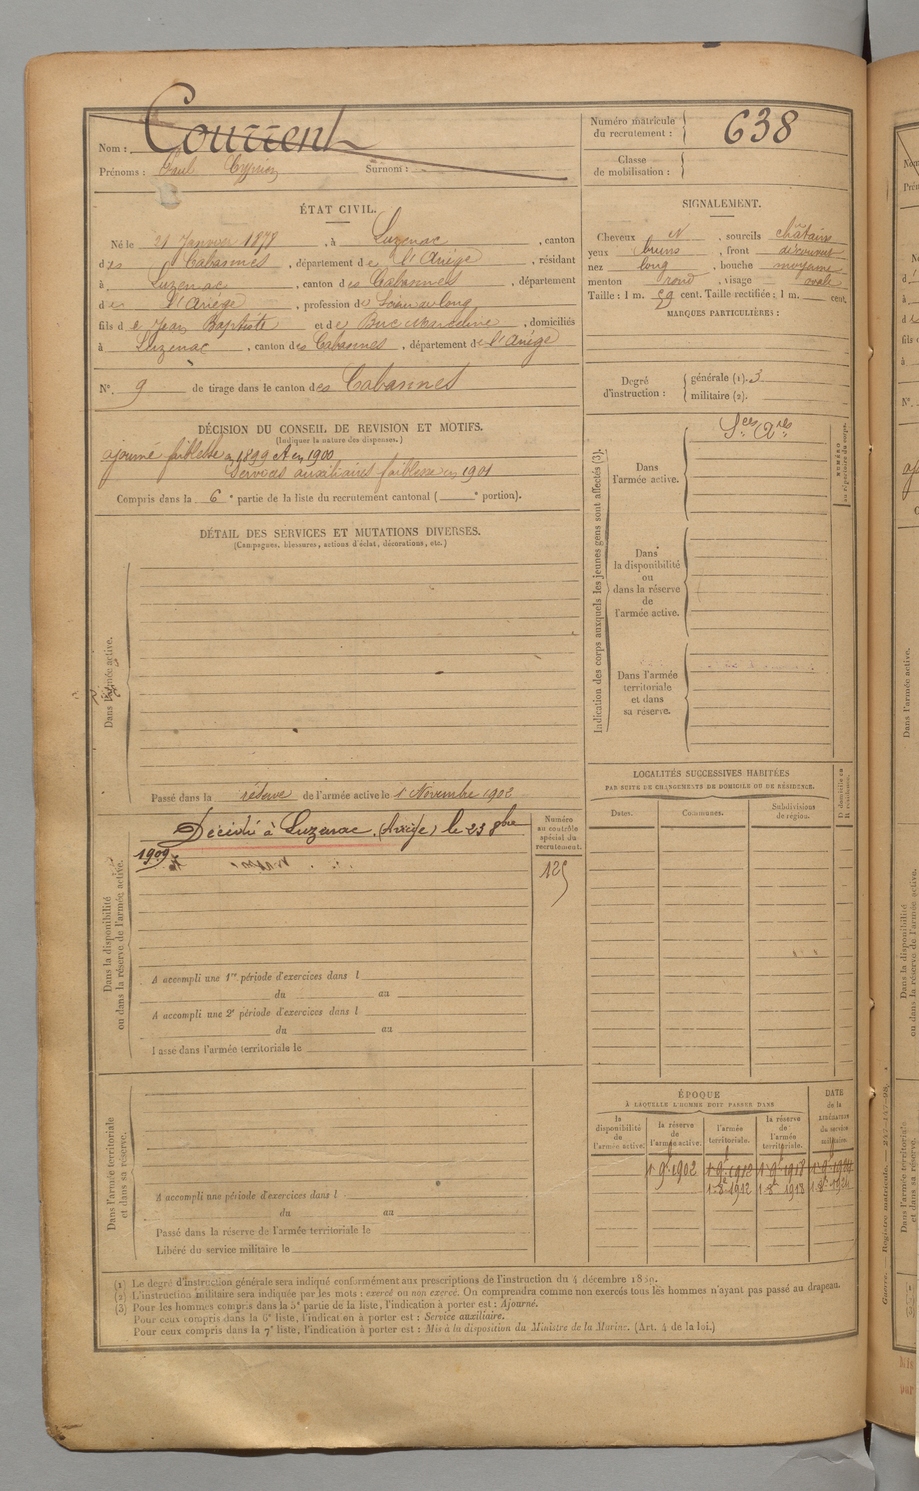 Nom : Courrent
Prénoms : Paul Cyprien Surnom :
Numéro matricule du recrutement : 638
Classe de mobilisation :
ÉTAT CIVIL.
Né le 21 Janvier 1878, à Luzenac, canton
des Cabannes, département de l'Ariège, résidant
à Luzenac, canton des Cabannes, département
de l'Ariège, profession de Scieur de long
fils de Jean Baptiste et de Buc Marceline, domiciliés
à Luzenac, canton des Cabannes, département de l'Ariège
N° 9 de tirage dans le canton des Cabannes
SIGNALEMENT.
Cheveux N, sourcils châtains
yeux bruns, front découvert
nez long, bouche moyenne
menton rond, visage ovale
Taille : 1 m. 59 cent. Taille rectifiée : 1 m. cent.
MARQUES PARTICULIÈRES :
Degré d'instruction : générale (1). 3
militaire (2).
DÉCISION DU CONSEIL DE REVISION ET MOTIFS.
(Indiquer la nature des dispenses.)
ajourné faiblesse en 1899 et en 1900
Services auxiliaires faiblesse en 1901
Compris dans la 6e partie de la liste du recrutement cantonal ( e portion).
DÉTAIL DES SERVICES ET MUTATIONS DIVERSES.
(Campagnes, blessures, actions d'éclat, décorations, etc.)
Dans l'armée active.
Passé dans la réserve de l'armée active le 1 Novembre 1902
Indication des corps auxquels les jeunes gens sont affectés (3).
Dans l'armée active.
Sces Ares
Dans la disponibilité ou dans la réserve de l'armée active.
Dans l'armée territoriale et dans sa réserve.
NUMÉRO au répertoire du corps.
Dans la disponibilité ou dans la réserve de l'armée active.
Décédé à Luzenac (Ariège) le 23 8bre
1909
Numéro au contrôle spécial du recrutement.
125
A accompli une 1re période d'exercices dans l
du au
A accompli une 2e période d'exercices dans l
du au
Passé dans l'armée territoriale le
LOCALITÉS SUCCESSIVES HABITÉES
PAR SUITE DE CHANGEMENTS DE DOMICILE OU DE RÉSIDENCE.
Dates. Communes. Subdivisions de région. D domicile ou R résidence.
Dans l'armée territoriale et dans sa réserve.
A accompli une période d'exercices dans l
du au
Passé dans la réserve de l'armée territoriale le
Libéré du service militaire le
ÉPOQUE
À LAQUELLE L'HOMME DOIT PASSER DANS
DATE de la LIBÉRATION du service militaire.
la disponibilité de l'armée active. la réserve de l'armée active. l'armée territoriale. la réserve de l'armée territoriale.
1 9bre 1902 1 9bre 1912 1 9bre 1918 1 9bre 1924
1 8bre 1912 1 8bre 1918 1 8bre 1924
(1) Le degré d'instruction générale sera indiqué conformément aux prescriptions de l'instruction du 4 décembre 1889.
(2) L'instruction militaire sera indiquée par les mots : exercé ou non exercé. On comprendra comme non exercés tous les hommes n'ayant pas passé au drapeau.
(3) Pour les hommes compris dans la 5e partie de la liste, l'indication à porter est : Ajourné.
Pour ceux compris dans la 6e liste, l'indication à porter est : Service auxiliaire.
Pour ceux compris dans la 7e liste, l'indication à porter est : Mis à la disposition du Ministre de la Marine. (Art. 4 de la loi.)